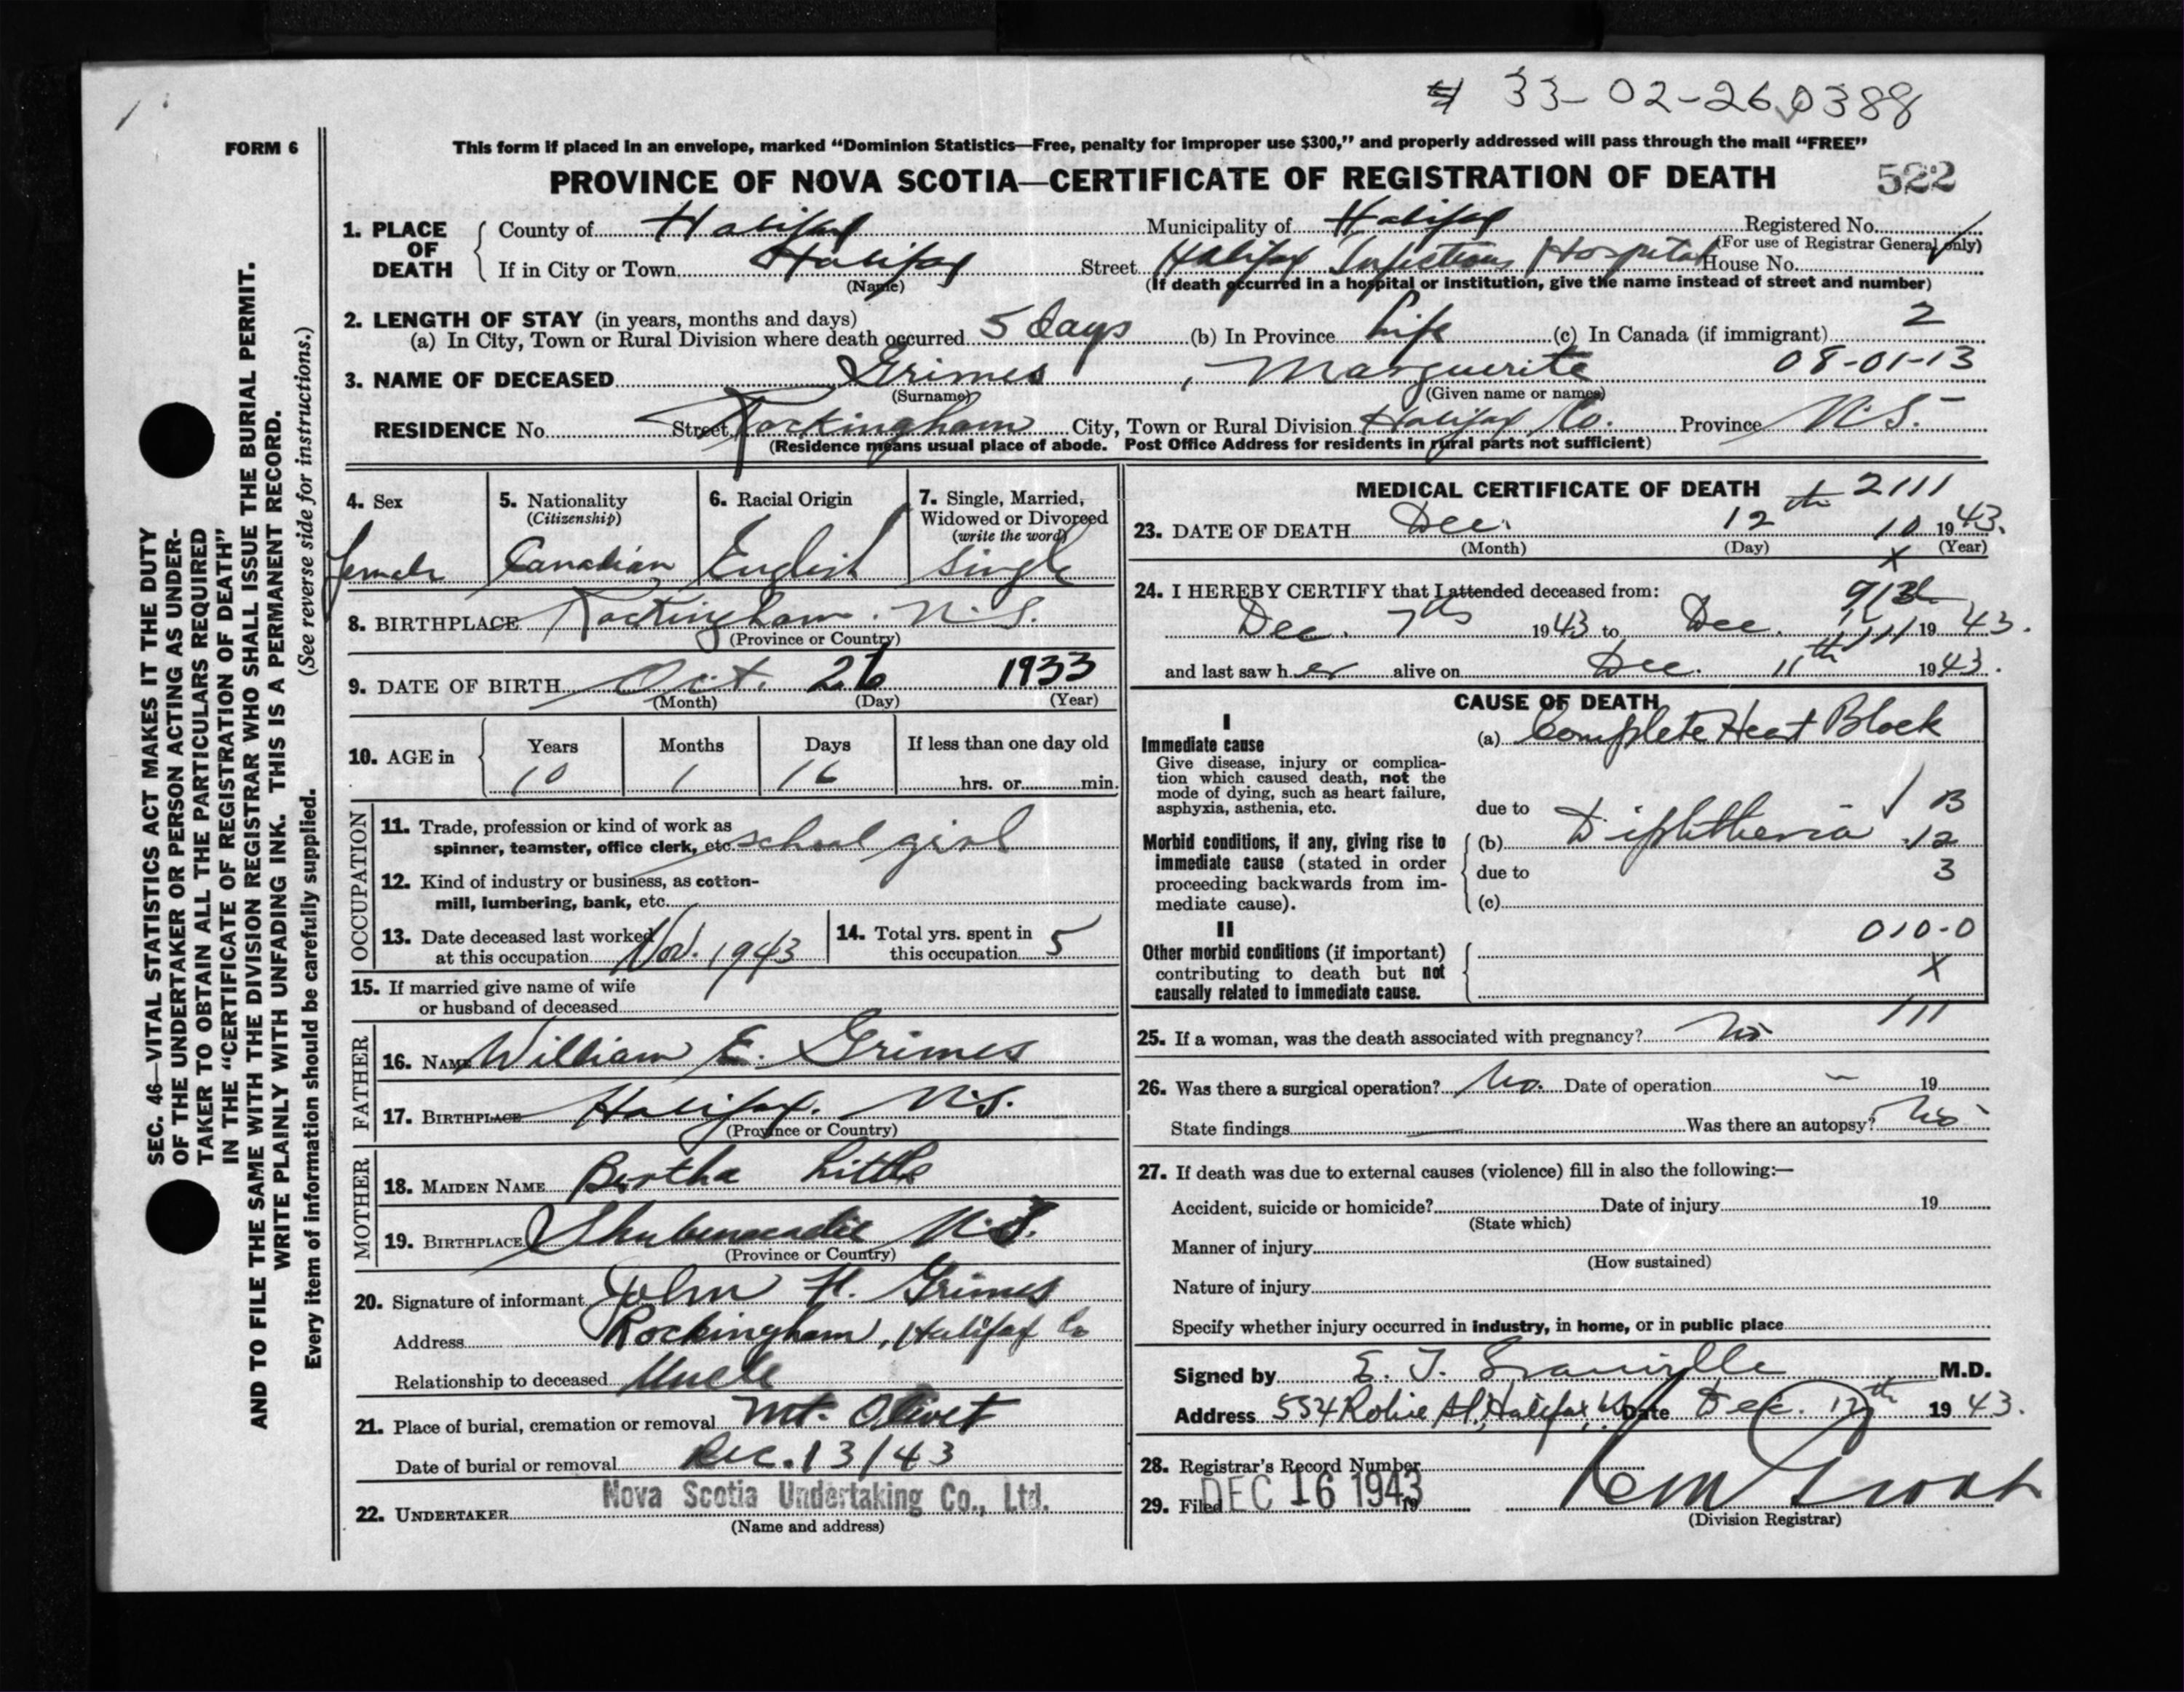 # 33-02-26 0388
FORM 6
This form if placed in an envelope, marked “Dominion Statistics—Free, penalty for improper use $300,” and properly addressed will pass through the mail “FREE”
PROVINCE OF NOVA SCOTIA—CERTIFICATE OF REGISTRATION OF DEATH 522
1. PLACE OF DEATH County of Halifax Municipality of Halifax Registered No.
(For use of Registrar General only)
If in City or Town Halifax Street Halifax Infectious Hospital House No.
(Name) (If death occurred in a hospital or institution, give the name instead of street and number)
2. LENGTH OF STAY (in years, months and days)
(a) In City, Town or Rural Division where death occurred 5 days (b) In Province Life (c) In Canada (if immigrant) 2
08-01-13
3. NAME OF DECEASED Grimes, Marguerite
(Surname) (Given name or names)
RESIDENCE No. Street Rockingham City, Town or Rural Division Halifax Co. Province N.S.
(Residence means usual place of abode. Post Office Address for residents in rural parts not sufficient)
4. Sex 5. Nationality 6. Racial Origin 7. Single, Married,
(Citizenship) Widowed or Divorced
(write the word)
Female Canadian English Single
8. BIRTHPLACE Rockingham. N.S.
(Province or Country)
9. DATE OF BIRTH Oct. 26 1933
(Month) (Day) (Year)
10. AGE in Years Months Days If less than one day old
10 1 16 hrs. or min.
OCCUPATION
11. Trade, profession or kind of work as
spinner, teamster, office clerk, etc. school girl
12. Kind of industry or business, as cotton-
mill, lumbering, bank, etc.
13. Date deceased last worked 14. Total yrs. spent in
at this occupation Nov. 1943 this occupation 5
15. If married give name of wife
or husband of deceased
FATHER
16. NAME William E. Grimes
17. BIRTHPLACE Halifax. N.S.
(Province or Country)
MOTHER
18. MAIDEN NAME Bertha Little
19. BIRTHPLACE Shubenacadie N.S.
(Province or Country)
20. Signature of informant John H. Grimes
Address Rockingham, Halifax Co
Relationship to deceased Uncle
21. Place of burial, cremation or removal Mt. Olivet
Date of burial or removal Dec. 13/43
22. UNDERTAKER Nova Scotia Undertaking Co., Ltd.
(Name and address)
MEDICAL CERTIFICATE OF DEATH 2111
23. DATE OF DEATH Dec. 12th 10 1943.
(Month) (Day) (Year)
X
24. I HEREBY CERTIFY that I attended deceased from:
Dec. 7th 1943 to Dec. 1943.
and last saw her alive on Dec. 11th 1943.
CAUSE OF DEATH
I
Immediate cause (a) Complete Heart Block
Give disease, injury or complica-
tion which caused death, not the
mode of dying, such as heart failure,
asphyxia, asthenia, etc. due to
Morbid conditions, if any, giving rise to (b) Diphtheria 12
immediate cause (stated in order
proceeding backwards from im- due to 3
mediate cause). (c)
II 010-0
Other morbid conditions (if important)
contributing to death but not X
causally related to immediate cause.
111
25. If a woman, was the death associated with pregnancy? No
26. Was there a surgical operation? No. Date of operation – 19
State findings — Was there an autopsy? No
27. If death was due to external causes (violence) fill in also the following:—
Accident, suicide or homicide? Date of injury 19
(State which)
Manner of injury
(How sustained)
Nature of injury
Specify whether injury occurred in industry, in home, or in public place
Signed by E. J. Granville M.D.
Address 554 Robie St, Halifax, Date Dec. 12th 1943.
28. Registrar's Record Number
29. Filed DEC 16 1943 19
(Division Registrar)
SEC. 46—VITAL STATISTICS ACT MAKES IT THE DUTY
OF THE UNDERTAKER OR PERSON ACTING AS UNDER-
TAKER TO OBTAIN ALL THE PARTICULARS REQUIRED
IN THE “CERTIFICATE OF REGISTRATION OF DEATH”
AND TO FILE THE SAME WITH THE DIVISION REGISTRAR WHO SHALL ISSUE THE BURIAL PERMIT.
WRITE PLAINLY WITH UNFADING INK. THIS IS A PERMANENT RECORD.
Every item of information should be carefully supplied. (See reverse side for instructions.)